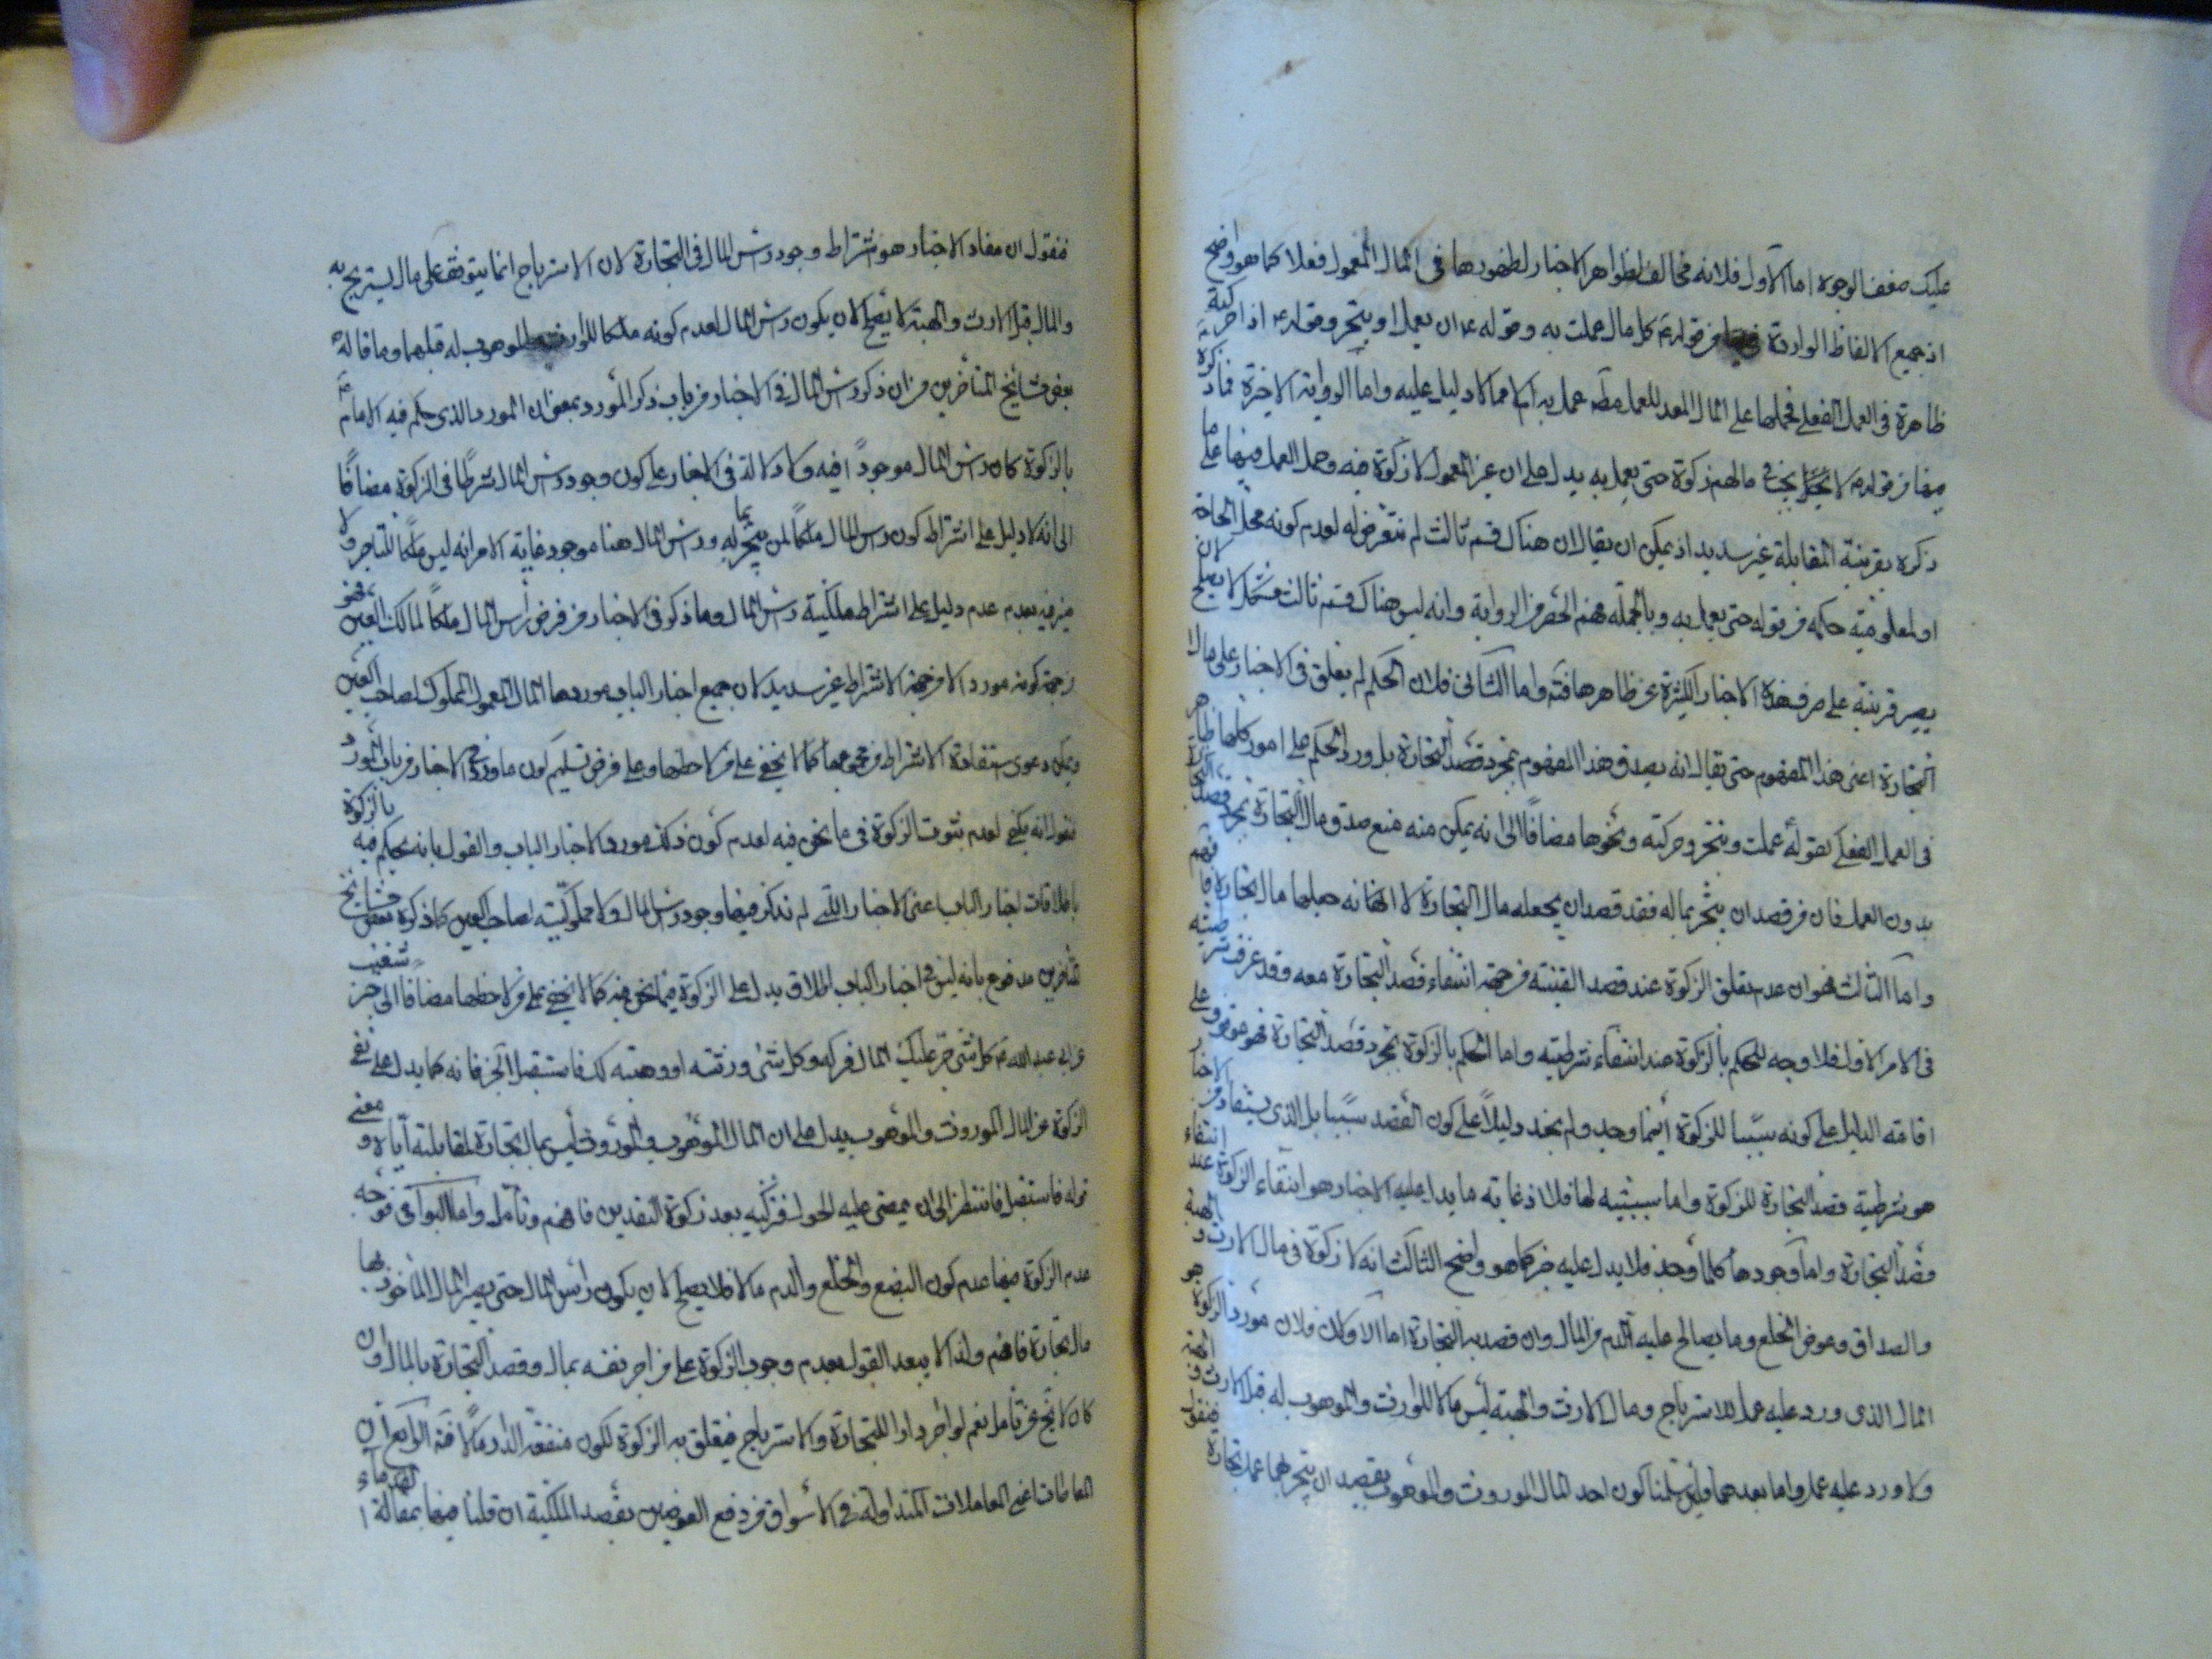 عليك ضعف الوجوه اما الاول فلانه مخالف لظواهر الاخبار لظهورها في المال المعمول فعلا كما هو واضح
اذ جميع الالفاظ الواردة من قوله كل مال عملت به وقوله ان يعمل او يتجر وقوله اذا حركته
ظاهرة في العمل الفعلي فحملها على المال المعد للعمل عمل به ام لا مما لا دليل عليه واما الرواية الاخيرة فما ذكره
فيها من قوله مالهم زكوة حتى يعمل به يدل على ان غير المعمول لا زكوة فيه وحمل العمل فيها على ما
ذكره بقرينة المقابلة غير سديد اذ يمكن ان يقال ان هناك قسم ثالث لم نتعرض له لعدم كونه محل الحاجة
او لمعلومية حكمه من قوله حتى يعمل به وبالجملة فهم الحصر من الرواية وانه ليس هناك قسم ثالث مشكل لان يصلح
يصير قرينة على صرف هذه الاخبار الكثيرة عن ظاهرها واما الثاني فلان الحكم لم يعلق في الاخبار على مال
التجارة اعني هذا المفهوم حتى يقال انه يصدق هذا المفهوم بمجرد قصد التجارة بل ورد الحكم على امور كلها ظاهر
في العمل الفعلي كقوله عملت ويتجر وحركته ونحوها مضافا الى انه يمكن منه منع صدق مال التجارة بمجرد قصد
بدون العمل فان من قصد ان يتجر بماله فقد قصد ان يجعله مال التجارة لا انه جعلها مال التجارة فافهم
واما الثالث فهو ان عدم تعلق الزكوة عند قصد القنية من جهة انتفاء قصد التجارة معه وقد عرفت شرطيته
في الامر الاول فلا وجه للحكم بالزكوة عند انتفاء شرطيته واما الحكم بالزكوة بمجرد قصد التجارة فهو موقوف على
اقامة الدليل على كونه سببا للزكوة اينما وجد ولم نجد دليلا على كون القصد سببا بل الذي يستفاد من الاخبار
هو شرطية قصد التجارة للزكوة واما سببيته لها فلا اذ غاية ما يدل عليه الاخبار هو انتفاء الزكوة عند انتفاء
قصد التجارة واما وجودها كلما وجد فلا يدل عليه خبر كما هو واضح الثالث انه لا زكوة في مال الارث والهبة
والصداق وعوض الخلع وما يصالح عليه الدم من المال وان قصد به التجارة اما الاولان فلان مورد الزكوة هو
المال الذي ورد عليه عمل للاسترباح ومال الارث والهبة ليس مالا للوارث والموهوب له قبل الارث والهبة
ولا ورد عليه عمل واما بعدهما سلمنا كون احد المال الموروث والموهوب بقصد ان يتجر بهما عمل تجارة فنقول
فنقول ان مفاد الاخبار هو اشتراط وجود رأس المال في التجارة لان الاسترباح انما يتوقف على مال يستربح به
والمال قبل الارث والهبة لا يصلح لان يكون رأس المال لعدم كونه ملكا للوارث والموهوب له قبلهما وما قاله
بعض مشايخ المتأخرين من ان ذكر رأس المال في الاخبار من باب ذكر المورد بمعنى ان المورد الذي حكم فيه الامام
بالزكوة كان رأس المال موجودا فيه ولا دلالة في الاخبار على كون وجود رأس المال شرطا في الزكوة مضافا
الى انه لا دليل على اشتراط كون رأس المال ملكا لمن يتجر به ورأس المال هنا موجود غاية الامر انه ليس ملكا للتاجر ولا
ضير فيه بعدم عدم دليل على اشتراط ملكية رأس المال وما ذكر في الاخبار من فرض رأس المال ملكا لمالك العين فهو
من جهة كونه مورد الا من جهة الاشتراط غير سديد لان جميع اخبار الباب موردها المال المعمول المملوك لصاحب العين
ويمكن دعوى استفادة الاشتراط من مجموعها كما لا يخفى على من لاحظها وعلى فرض تسليم كون ما ورد في الاخبار من باب المورد
نقول انه يكفي لعدم ثبوت الزكوة في ما نحن فيه لعدم كون ذلك مورد الاخبار الباب والقول بانه يحكم فيه بالزكوة
باطلاقات اخبار الباب اعني الاخبار التي لم نذكر فيها وجود رأس المال ولا مملوكيته لصاحب العين كما ذكره بعض مشايخ
المتأخرين مدفوع بانه ليس في اخبار الباب اطلاق يدل على الزكوة فيما نحن فيه كما لا يخفى على من لاحظها مضافا الى خبر شعيب
عن ابي عبد الله كل شيء جر عليك المال فزكه وكل شيء ورثته او وهب لك فاستقبل به الخبر فانه كما يدل على نفي
الزكوة عن المال الموروث والموهوب يدل على ان المال الموهوب والموروث ليس بمال تجارة لمقابلته اياه ومعنى
قوله فاستقبل فانتظر الى ان يمضي عليه الحول فتزكيه بعد زكوة النقدين فافهم وتأمل واما البواقي فوجه
عدم الزكوة فيها عدم كون البضع والخلع والدم مالا فلا يصلح لان يكون رأس المال حتى يصير المال المأخوذ بها
مال تجارة فافهم ولذا لا يبعد القول بعدم وجوب الزكوة على من اجر نفسه بمال وقصد التجارة بالمال وان
كان لا يخ عن تأمل نعم لو اجر دارا للتجارة والاسترباح فيتعلق به الزكوة لكون منفعة الدار مالا الرابع ان
المعاطات اعني المعاملات المتداولة في الاسواق من دفع العوضين بقصد الملكية ان قلنا فيها بمقالة